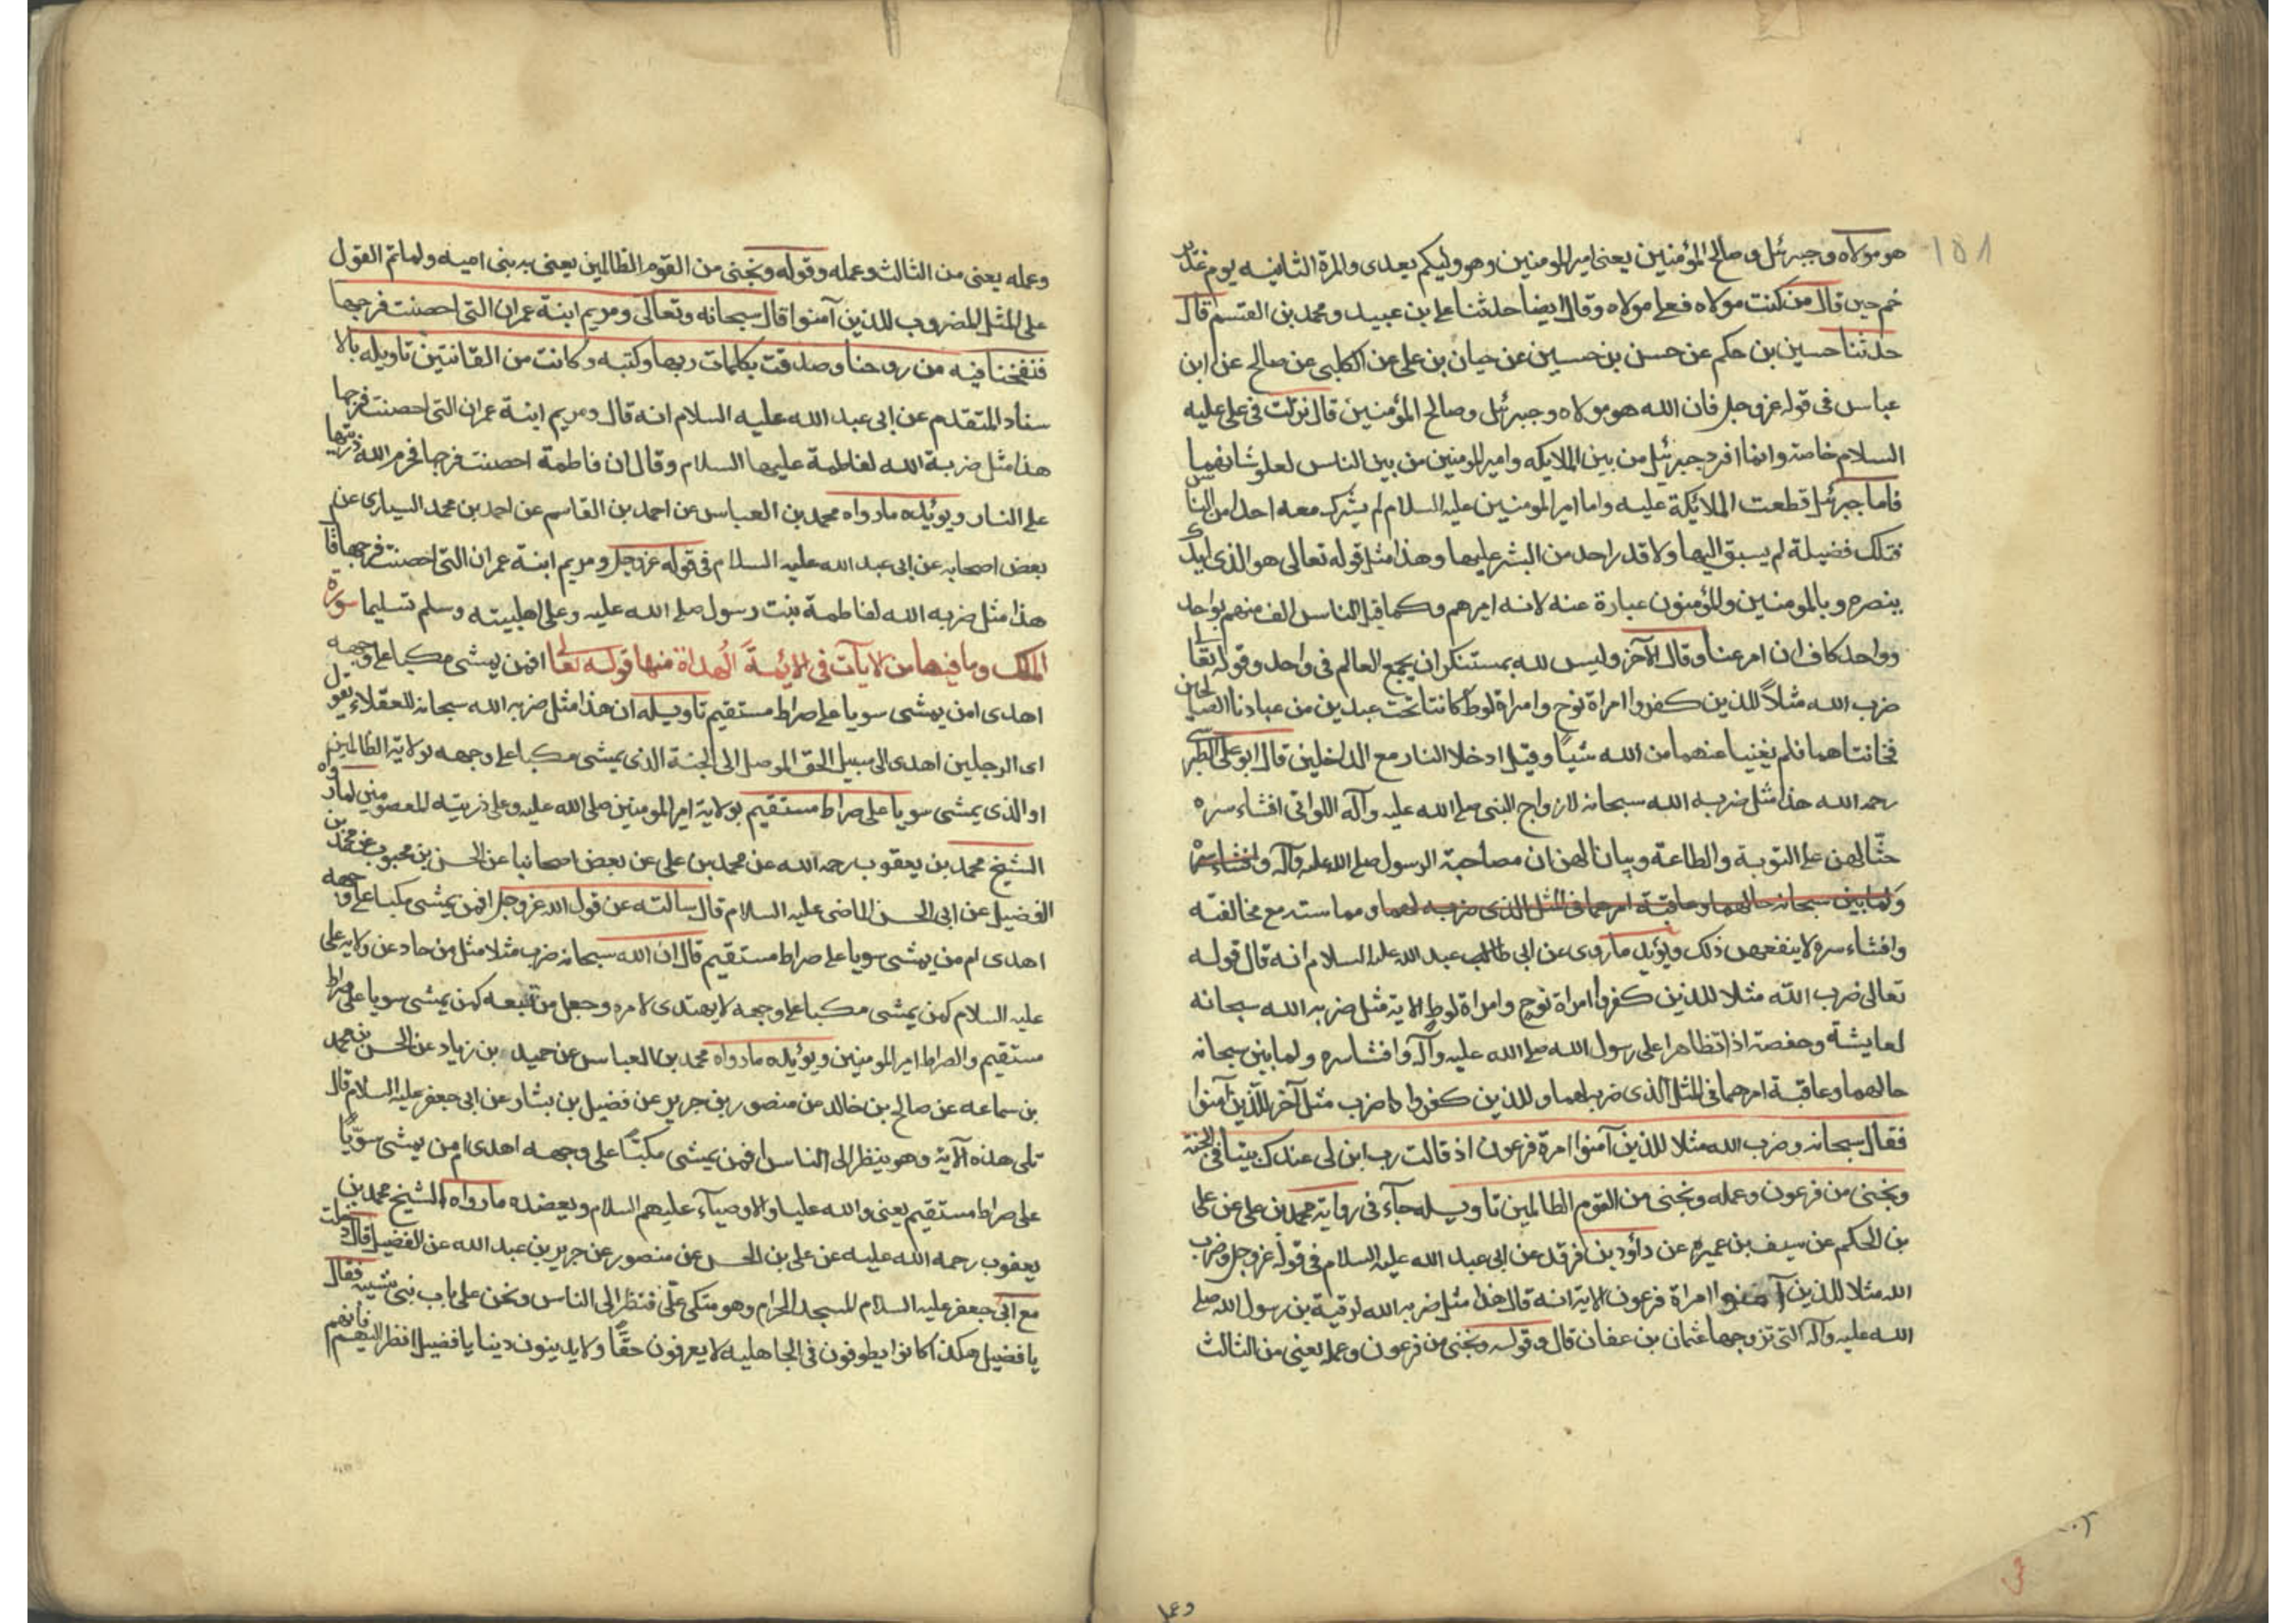 ١٥٨
هو مولاه وجبرئل وصالح المؤمنين يعنى امير المومنين وهو وليكم بعدى والمرة الثانيه يوم غدير
خم حين قال من كنت مولاه فعلى مولاه وقال ايضا حدثنا على بن عبيد ومحمد بن القسم قال
حدثنا حسين بن حكم عن حسن بن حسين عن حيان بن على عن الكلبى عن صالح عن ابن
عباس فى قوله عز وجل فان الله هو مولاه وجبرئل وصالح المؤمنين قال نزلت فى على عليه
السلام خاصة وانما افرد جبرئيل من بين الملايكه وامير المومنين من بين الناس لعلو شانهما
فاما جبرئل قطعت الملائكة عليه واما امير المومنين عليه السلام لم يشرك معه احدا من الناس
فتلك فضيلة لم يسبق اليها ولا قدر احد من البشر عليها وهذا مثل قوله تعالى هو الذى ايدك
بنصره وبالمومنين والمؤمنون عبارة عنه لانه اميرهم وكما قيل الناس الف منهم بواحد
وواحد كاف ان امر عنا وقال الآخر وليس لله بمستنكر ان يجمع العالم فى واحد وقوله تعالى
ضرب الله مثلاً للذين كفروا امراة نوح وامراة لوط كانتا تحت عبدين من عبادنا الصالحين
فخانتاهما فلم يغنيا عنهما من الله شيًا وقيل ادخلا النار مع الداخلين قال ابو على الطبرسى
رحمه الله هذا مثل ضربه الله سبحانه لازواج النبى صلى الله عليه وآله اللواتى افشاء سره
حثّا لهن على التوبة والطاعة وبيانا لهن ان مصاحبة الرسول صلى الله عليه وآله وافشاء سره
ولما بين سبحانه حالهما وعاقبة امرهما فى المثل الذى ضربه لهما ومماسته مع مخالفته
وافشاء سره لا ينفعهن ذلك ويؤيد ما روى عن ابى طالب عبد الله عليه السلام انه قال قوله
تعالى ضرب الله مثلا للذين كفروا امراة نوح وامراة لوط الاية مثل ضربه الله سبحانه
لعايشة وحفصة اذ تظاهرا على رسول الله صلى الله عليه وآله وافشا سره ولما بين سبحانه
حالهما وعاقبة امرهما فى المثل الذى ضربه لهما وللذين كفروا ضرب مثل آخر للذين آمنوا
فقال سبحانه وضرب الله مثلا للذين آمنوا امرة فرعون اذ قالت رب ابن لى عندك بيتا فى الجنة
ونجنى من فرعون وعمله ونجنى من القوم الظالمين تاويله جآء فى رواية محمد بن على عن على
بن الحكم عن سيف بن عميره عن داؤد بن فرقد عن ابى عبد الله عليه السلام فى قوله عز وجل وضرب
الله مثلا للذين آمنوا امراة فرعون الاية انه قال هذا مثل ضربه الله لرقية بن رسول الله صلى
الله عليه وآله التى تزوجها عثمان بن عفان قال وقوله ونجنى من فرعون وعمله يعنى من الثالث
وعمله يعنى من الثالث وعمله وقوله ونجنى من القوم الظالمين يعنى به بنى اميه ولما تم القول
على المثل المضروب للذين آمنوا قال سبحانه وتعالى ومريم ابنة عمران التى احصنت فرجها
فنفخنا فيه من روحنا وصدقت بكلمات ربها وكتبه وكانت من القانتين تاويله بالا
سناد المتقدم عن ابى عبد الله عليه السلام انه قال ومريم ابنة عمران التى احصنت فرجها
هذا مثل ضربة الله لفاطمة عليها السلام وقال ان فاطمة احصنت فرجها فحرم الله ذريتها
على النار ويوئيده ما رواه محمد بن العباس عن احمد بن القاسم عن احمد بن محمد السيارى عن
بعض اصحابه عن ابى عبد الله عليه السلام فى قوله عز وجل ومريم ابنة عمران التى احصنت فرجها قا
هذا مثل ضربه الله لفاطمة بنت رسول صلى الله عليه وعلى اهلبيته وسلم تسليما سوره
الملك وما فيها من الايات فى الائمة الهداة منها قوله تعالى افمن يمشى مكبا على وجهه
اهدى امن يمشى سويا على صراط مستقيم تاويله ان هذا مثل ضربه الله سبحانه للعقلاء يقول
اى الرجلين اهدى الى سبيل الحق الموصل الى الجنة الذى يمشى مكبا على وجهه لولاية الظالمين
او الذى يمشى سويا على صراط مستقيم بولاية امير المومنين صلى الله عليه وعلى ذريته المعصومين لما رواه
الشيخ محمد بن يعقوب رحمه الله عن محمد بن على عن بعض اصحابنا عن الحسن بن محبوب عن محمد بن
الفضيل عن ابى الحسن الماضى عليه السلام قال سالته عن قول الله عز وجل افمن يمشى مكبا على وجهه
اهدى ام من يمشى سويا على صراط مستقيم قال ان الله سبحانه ضرب مثلا مثل من حاد عن ولايه على
عليه السلام كمن يمشى مكبا على وجهه لا يهتدى لامره وجعل من تبعه كمن يمشى سويا على صراط
مستقيم والصراط امير المومنين ويوئيده ما رواه محمد بن العباس عن حميد بن زياد عن الحسن بن محمد
بن سماعه عن صالح بن خالد عن منصور بن جرير عن فضيل بن بشار عن ابى جعفر عليه السلام قال
تلى هذه الآية وهو ينظر الى الناس افمن يمشى مكبّا على وجهه اهدى امن يمشى سويّا
على صراط مستقيم يعنى والله عليا والاوصيآء عليهم السلام ويعضده ما رواه الشيخ محمد بن
يعقوب رحمه الله عليه عن على بن الحسن عن منصور عن جرير بن عبد الله عن الفضيل قال دخلت
مع ابى جعفر عليه السلام المسجد الحرام وهو متكى علّى فنظر الى الناس ونحن على باب بنى شيبه فقال
يا فضيل هكذا كانوا يطوفون فى الجاهليه لا يعرفون حقًّا ولا يدينون دينا يا فضيل انظر اليهم فانهم
وعمله